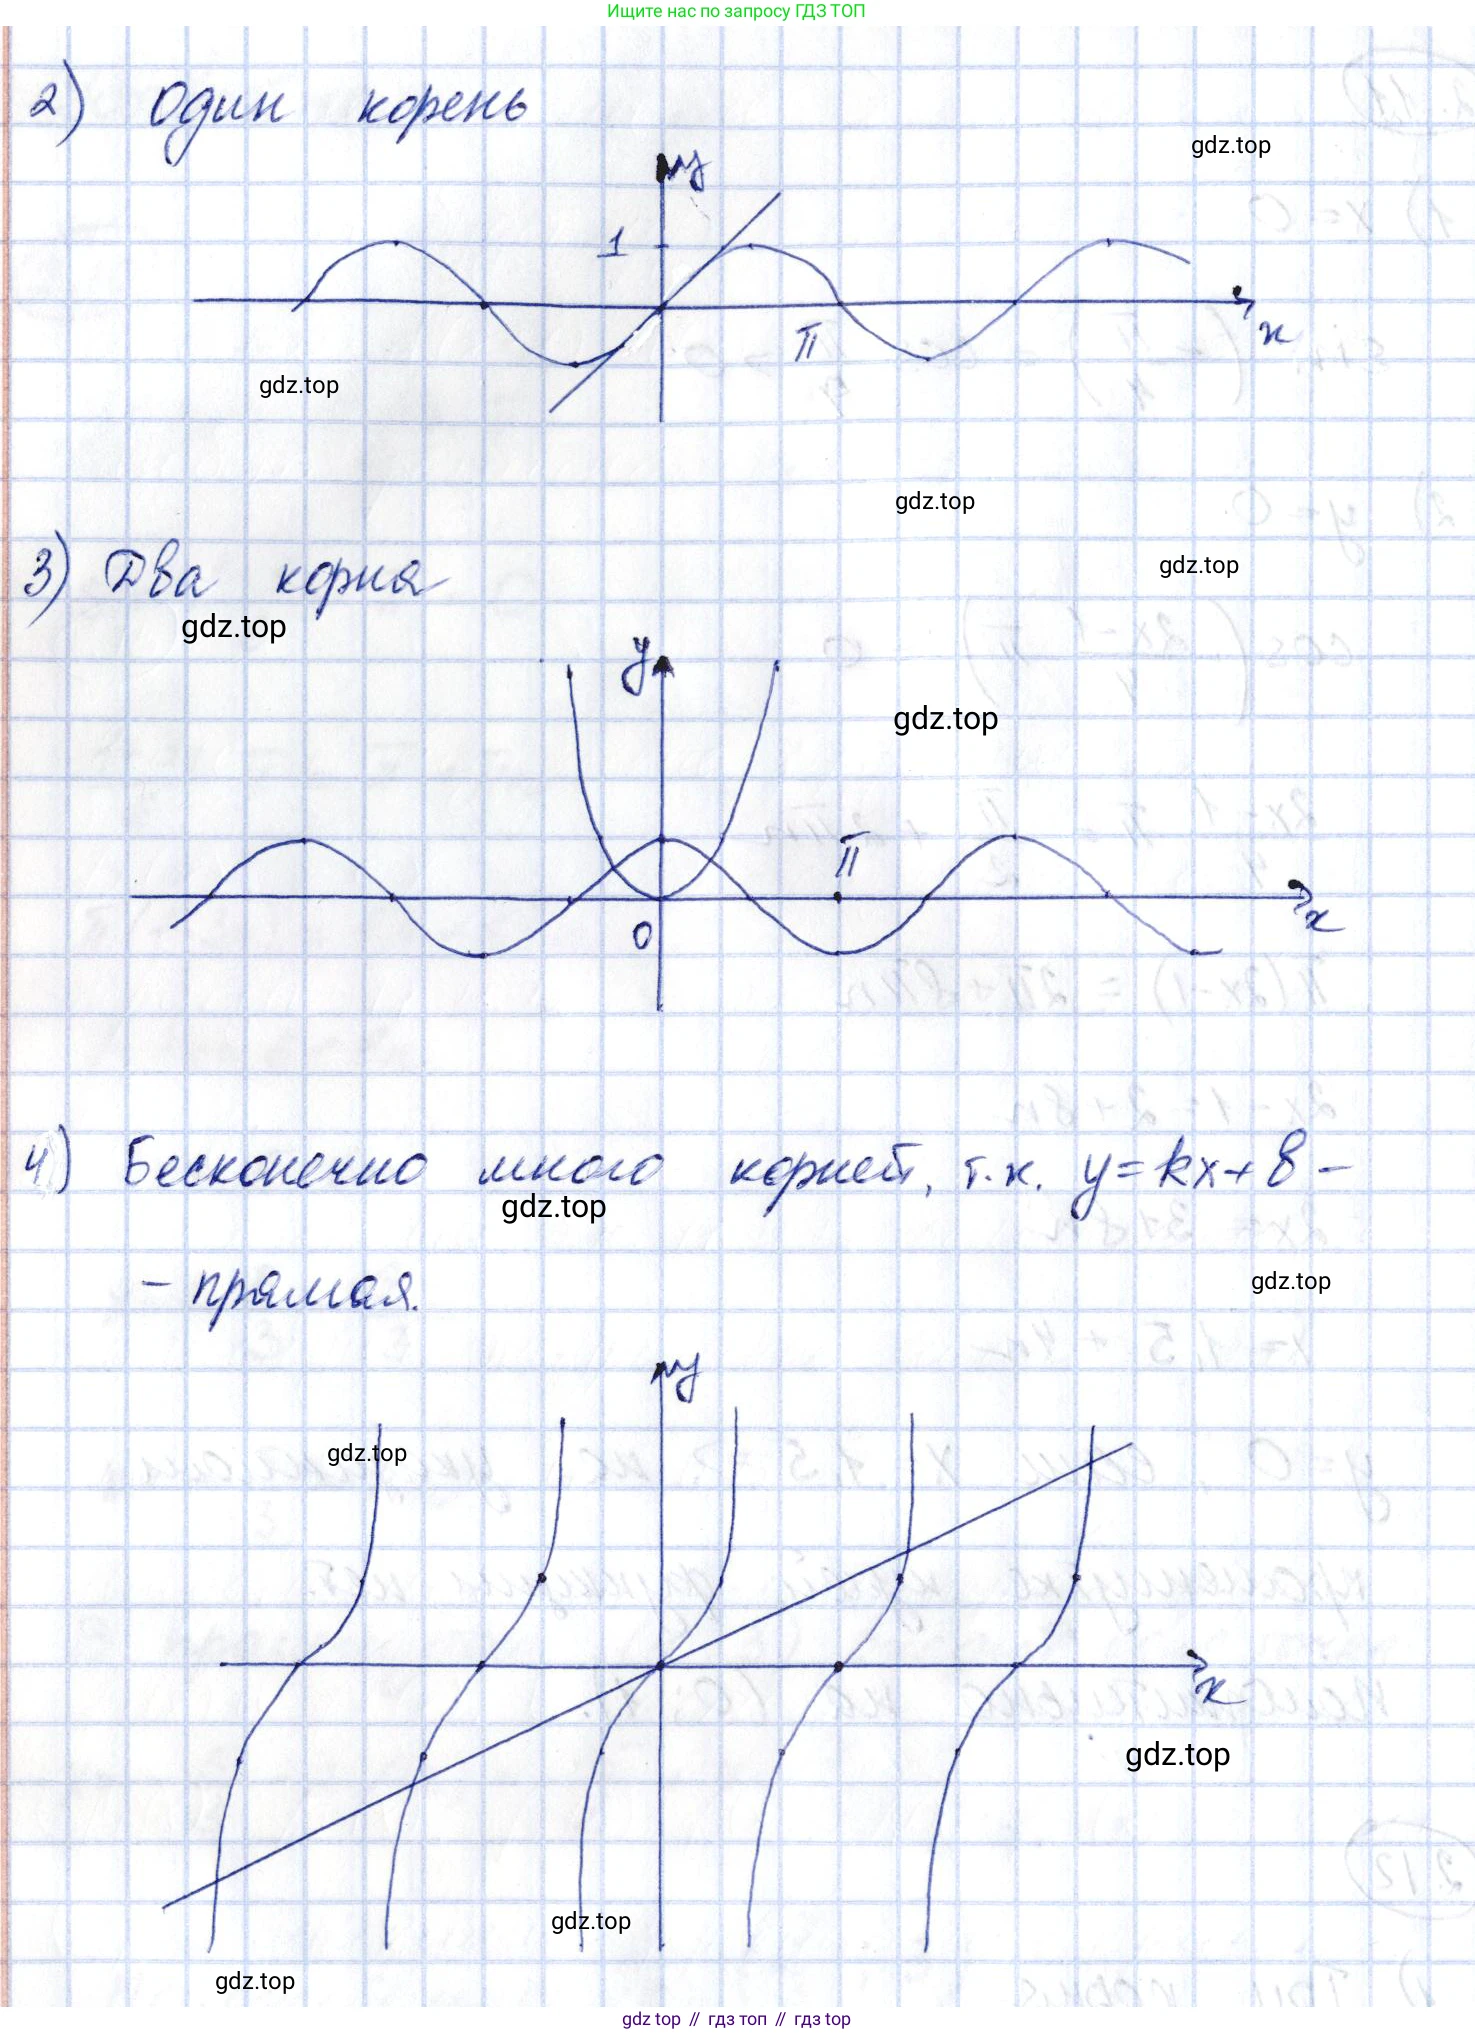 Ищите нас по запросу ГДЗ ТОП
2) Один корень
gdz.top
y
1
π
x
gdz.top
gdz.top
3) Два корня
gdz.top
gdz.top
y
gdz.top
π
0
x
4) Бесконечно много корней, т.к. y=kx+b –
gdz.top
– прямая.
gdz.top
y
gdz.top
x
gdz.top
gdz.top
gdz.top
gdz top // гдз топ // гдз top